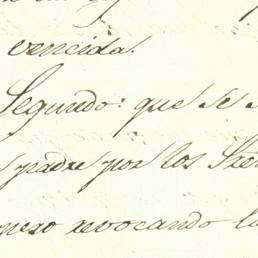 vencida.
Segundo: que se
padre por los
pero revocando la